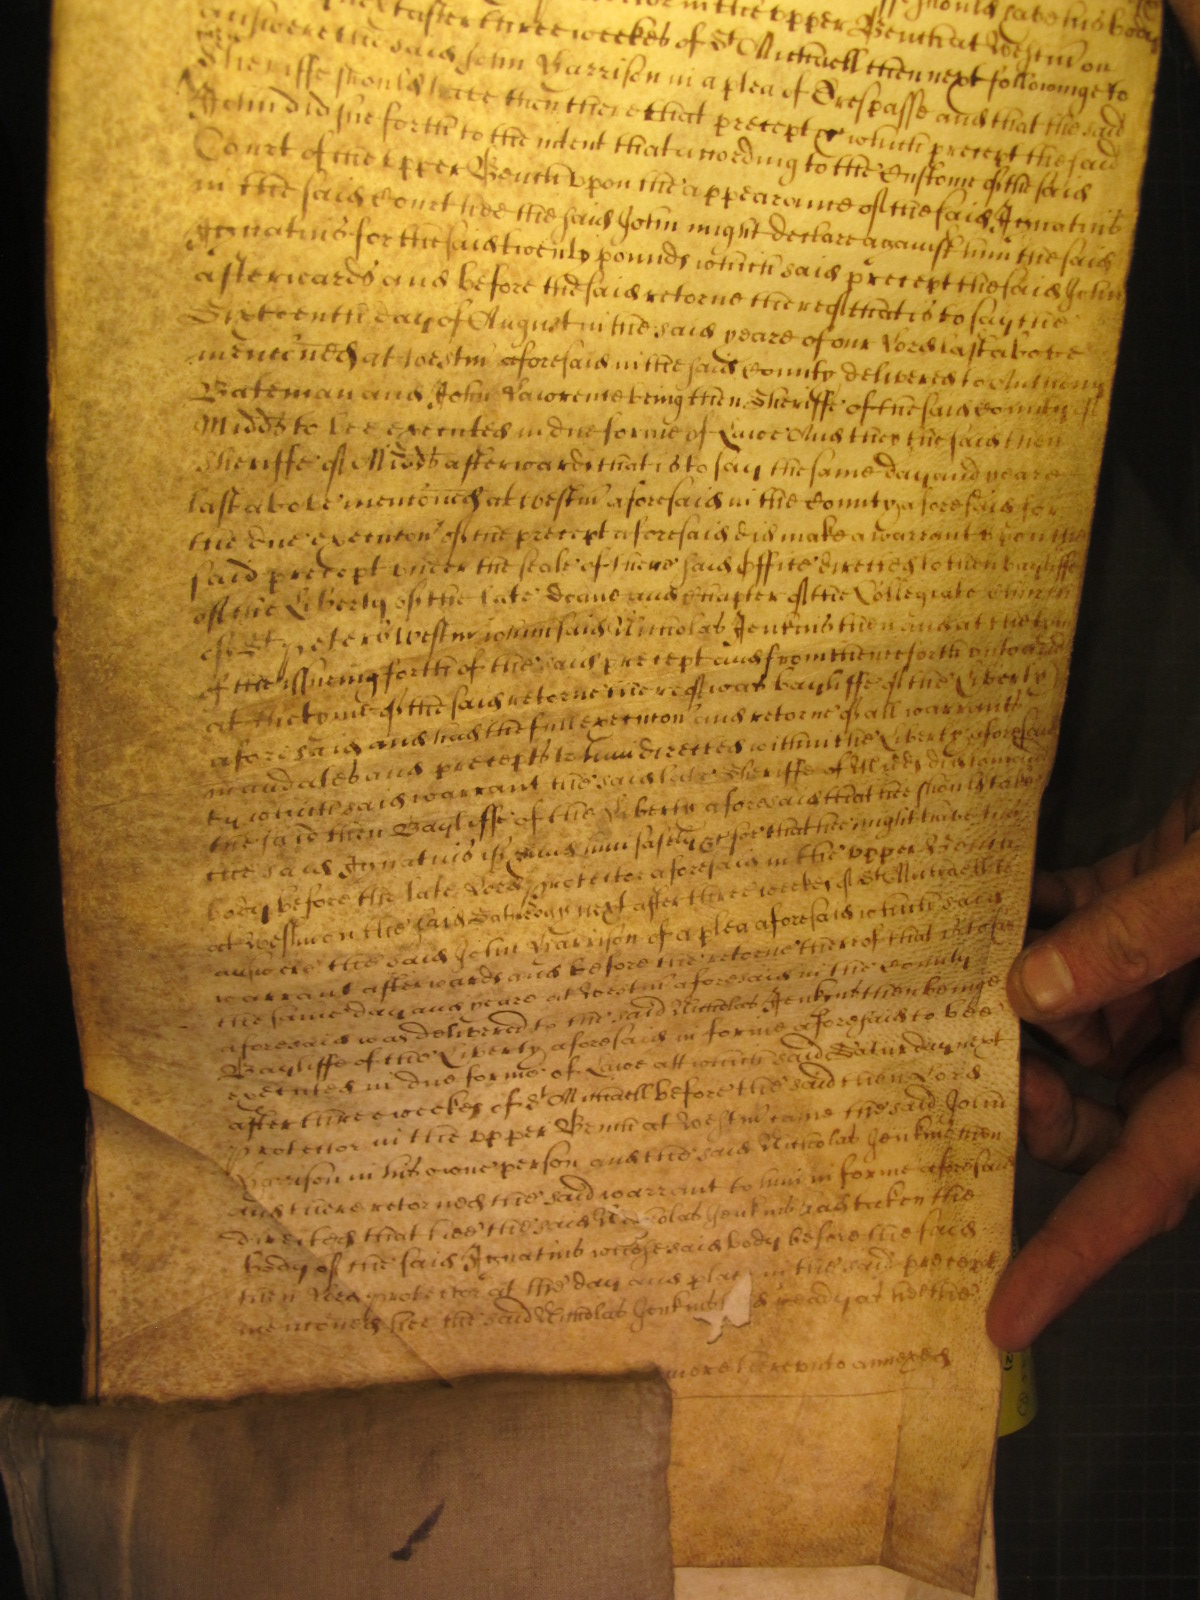 in the upper Bench at Westm on
next after three weekes of St Michaell then next followinge to
answere the said John Harrison in a plea of Trespasse and that the said
Sheriffe should have then there that precept which precept the said
John did sue forth to the intent that according to the Custome of the said
Court of the upper Bench upon the appearance of the said Ignatius
in the said Court hee the said John might declare against him the said
Ignatius for the said twenty pounds which said precept the said John
afterwards and before the said retorne thereof that is to say the
Sixteenth day of August in the said yeare of our Lord last above
mencõned at Westm aforesaid in the said County delivered to Anthony
Bateman and John Lawrence being then Sheriffe of the said County of
Midds to bee executed in due forme of Lawe And they the said then
Sheriffe of Midds afterwards that is to say the same day and yeare
last above mencõned at Westm aforesaid in the County aforesaid for
the due execucon of the precept aforesaid did make a warrant upon the
said precept under the seale of there said Office directed to then Bayliffe
of the Liberty of the late Deane and Chapter of the Collegiate Church
of St Peters Westm which said Nicholas Jenkins then and at the tyme
of the issueing forth of the said precept and from thence forth unto and
at the tyme of the said retorne thereof was Bayliffe of the Liberty
aforesaid and had the full execucon and retorne of all warrants
mandates and precepts to him directed within the Liberty aforesaid
by which said warrant the said late Sheriffe of Midds did comaund
the said then Bayliffe of the Liberty aforesaid that hee should take
the said Ignatius if and him safely &c soe that hee might have his
body before the late Lord Protector aforesaid in the upper Bench
at Westm on the said Saturday next after three weekes of St Michaell to
answere the said John Harrison of a plea aforesaid which said
warrant afterwards and before the retorne thereof that is to say
the same day and yeare at Westm aforesaid in the County
aforesaid was delivered to the said Nicholas Jenkins then beinge
Bayliffe of the Liberty aforesaid in forme aforesaid to bee
executed in due forme of Lawe att which said Saturday next
after three weekes of St Michaell before the said then Lord
Protector in the upper Bench at Westm came the said John
Harrison in his owne person and the said Nicholas Jenkins then
and there retorned the said warrant to him in forme aforesaid
directed that hee the said Nicholas Jenkins had taken the
body of the said Ignatius whose said body before the said
then Lord Protector at the day and place in the said precept
mencõned hee the said Nicholas Jenkins had ready as
hereunto annexed